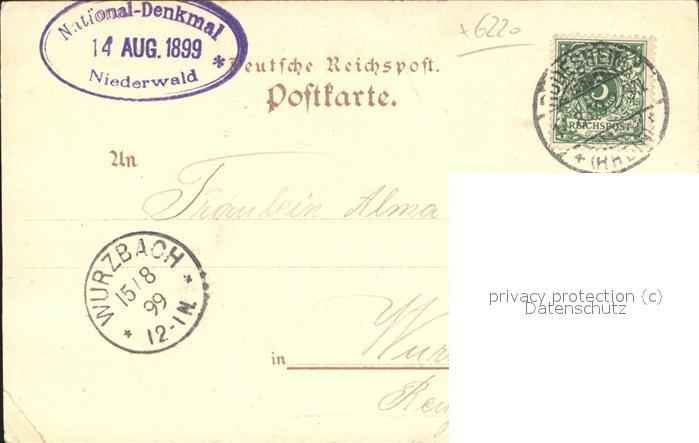 National-Denkmal
14 AUG. 1899 *
Niederwald
+6220
Deutsche Reichspost.
Postkarte.
REICHSPOST
An
Fräulein Alma
WURZBACH
15/8
99
* 12-1N. *
privacy protection (c)
Datenschutz
in
Wur